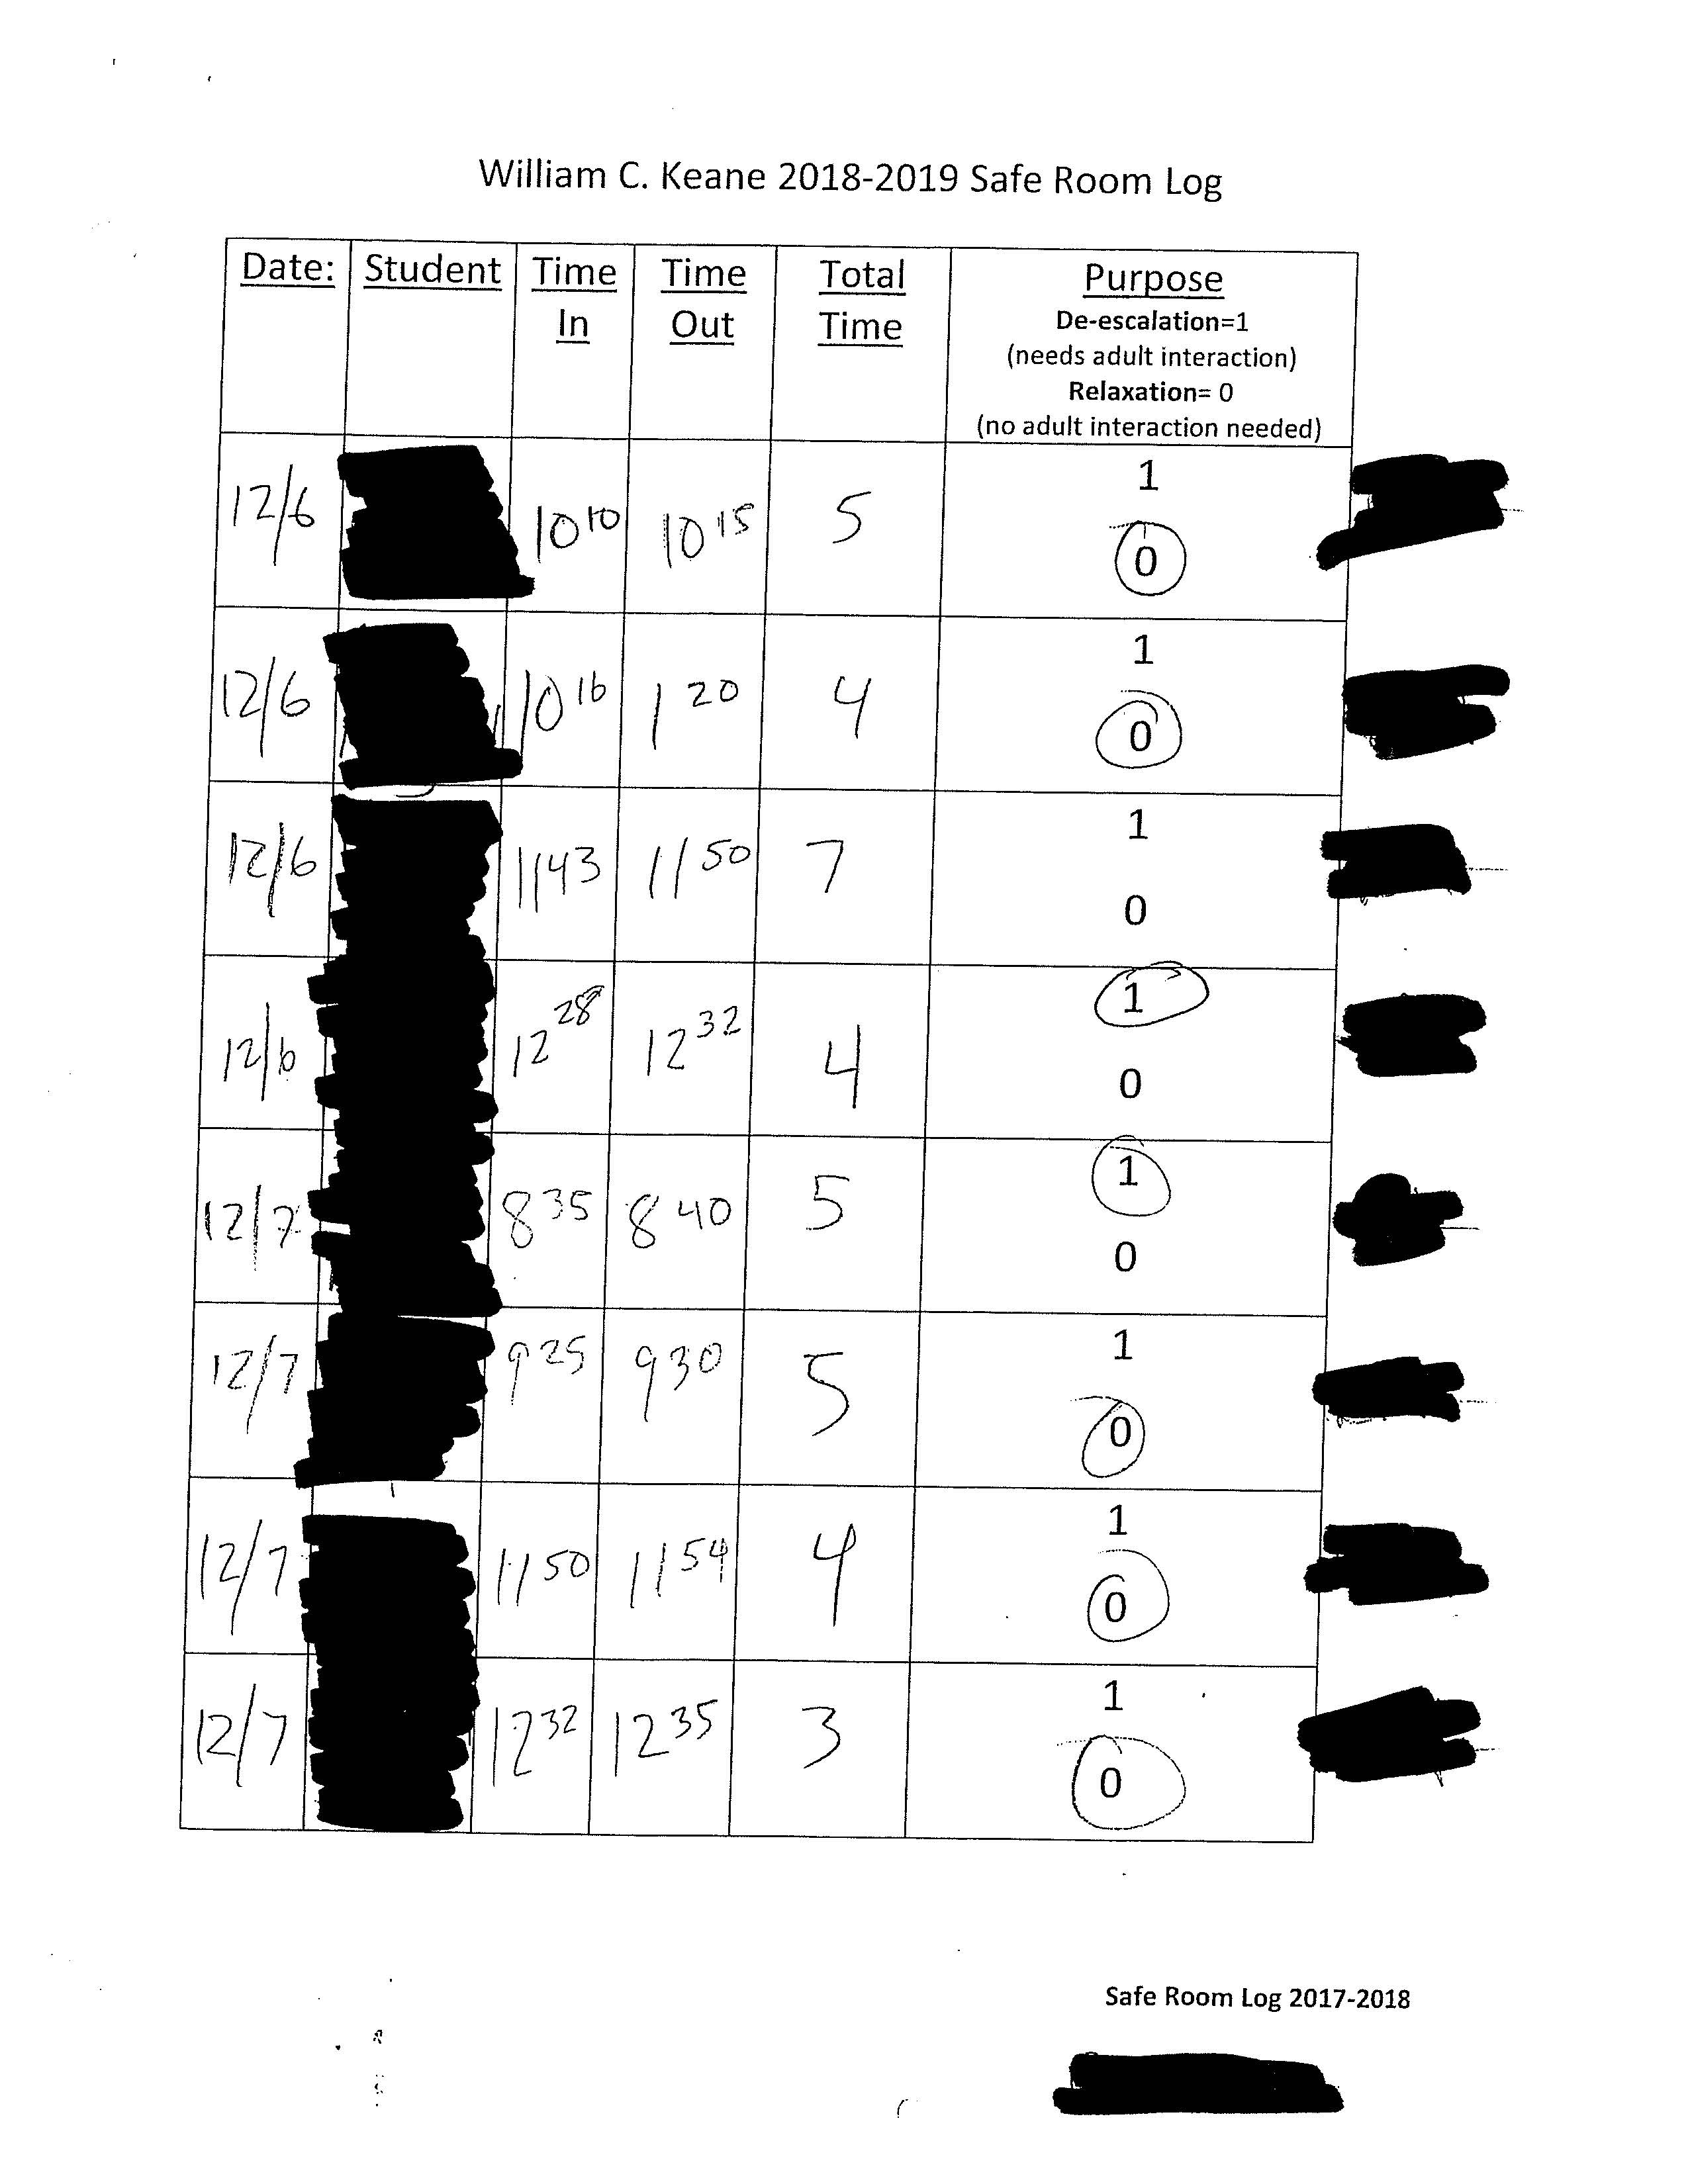 William C. Keane 2018-2019 Safe Room Log
Date: Student Time In Time Out Total Time Purpose
De-escalation=1
(needs adult interaction)
Relaxation= 0
(no adult interaction needed)
12/6 10 10 10 15 5 1 0
12/6 10 16 1 20 4 1 0
12/6 1143 11 50 7 1 0
12/6 12 28 12 32 4 1 0
12/7 8 35 8 40 5 1 0
12/7 9 25 9 30 5 1 0
12/7 11 50 11 54 4 1 0
12/7 12 32 12 35 3 1 0
Safe Room Log 2017-2018